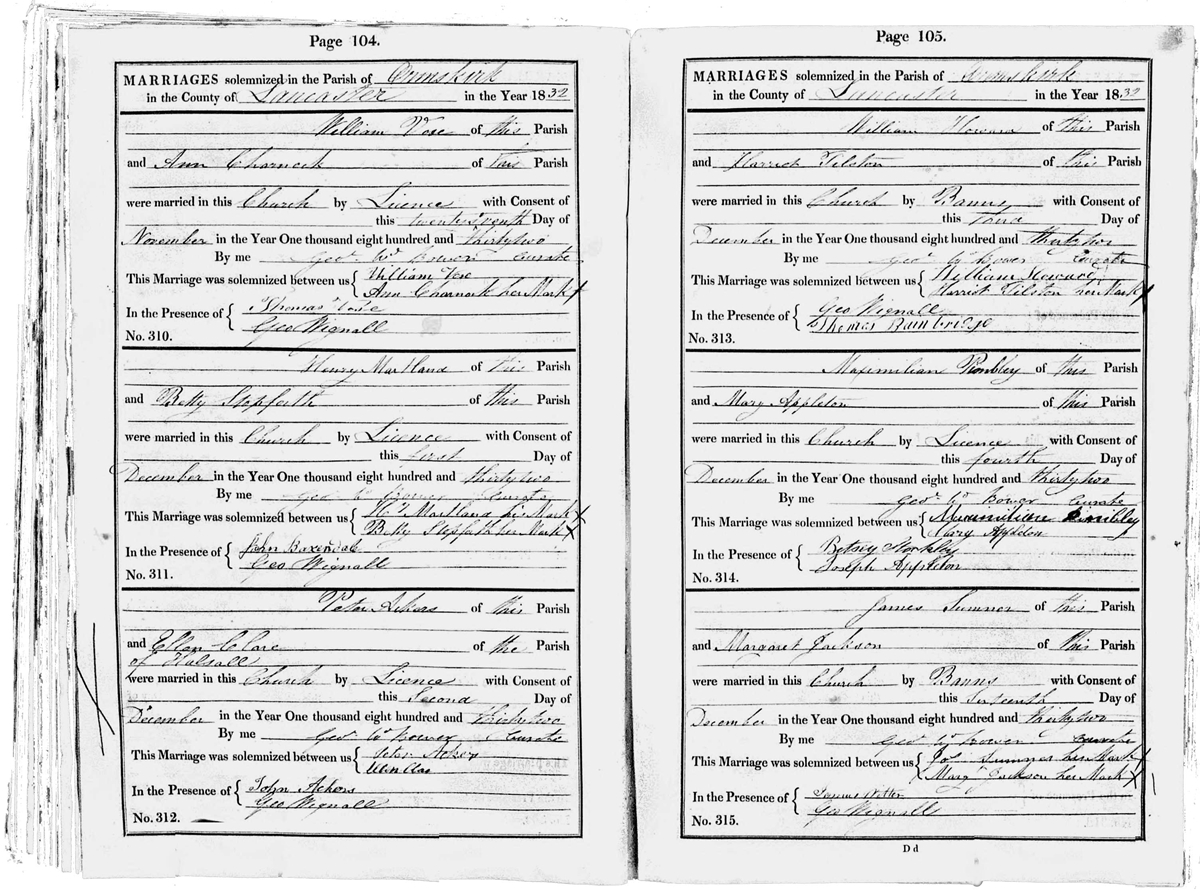 Page 104.
MARRIAGES solemnized in the Parish of Ormskirk
in the County of Lancaster in the Year 1832
William Vose of this Parish
and Ann Charnock of this Parish
were married in this Church by Licence with Consent of
this twentyseventh Day of
November in the Year One thousand eight hundred and thirtytwo
By me Geo. Wm Bower Curate
This Marriage was solemnized between us { William Vose
Ann Charnock her Mark X
In the Presence of { Thomas Vose
Geo Wignall
No. 310.
Henry Martland of this Parish
and Betty Stopforth of this Parish
were married in this Church by Licence with Consent of
this first Day of
December in the Year One thousand eight hundred and thirtytwo
By me Geo. Wm Bower Curate
This Marriage was solemnized between us { Hy Martland his Mark X
Betty Stopforth her Mark X
In the Presence of { John Baxendale
Geo Wignall
No. 311.
Peter Ackers of this Parish
and Ellen Clare of the Parish
of Halsall
were married in this Church by Licence with Consent of
this Second Day of
December in the Year One thousand eight hundred and thirtytwo
By me Geo. Wm Bower Curate
This Marriage was solemnized between us { Peter Ackers
Ellen Clare
In the Presence of { John Ackers
Geo Wignall
No. 312.
Page 105.
MARRIAGES solemnized in the Parish of Ormskirk
in the County of Lancaster in the Year 1832
William Howard of this Parish
and Harriet Tilston of this Parish
were married in this Church by Banns with Consent of
this Third Day of
December in the Year One thousand eight hundred and thirtytwo
By me Geo. Wm Bower Curate
This Marriage was solemnized between us { William Howard
Harriet Tilston her Mark X
In the Presence of { Geo Wignall
Thomas Bainbridge
No. 313.
Maximilian Rimbley of this Parish
and Mary Appleton of this Parish
were married in this Church by Licence with Consent of
this fourth Day of
December in the Year One thousand eight hundred and thirtytwo
By me Geo. Wm Bower Curate
This Marriage was solemnized between us { Maximilian
Mary Appleton
In the Presence of { Betsey
Joseph Appleton
No. 314.
James Sumner of this Parish
and Margaret Jackson of this Parish
were married in this Church by Banns with Consent of
this Sixteenth Day of
December in the Year One thousand eight hundred and thirtytwo
By me Geo. Wm Bower Curate
This Marriage was solemnized between us { Jas Sumner his Mark X
Margt Jackson her Mark X
In the Presence of { James
Geo Wignall
No. 315.
D d